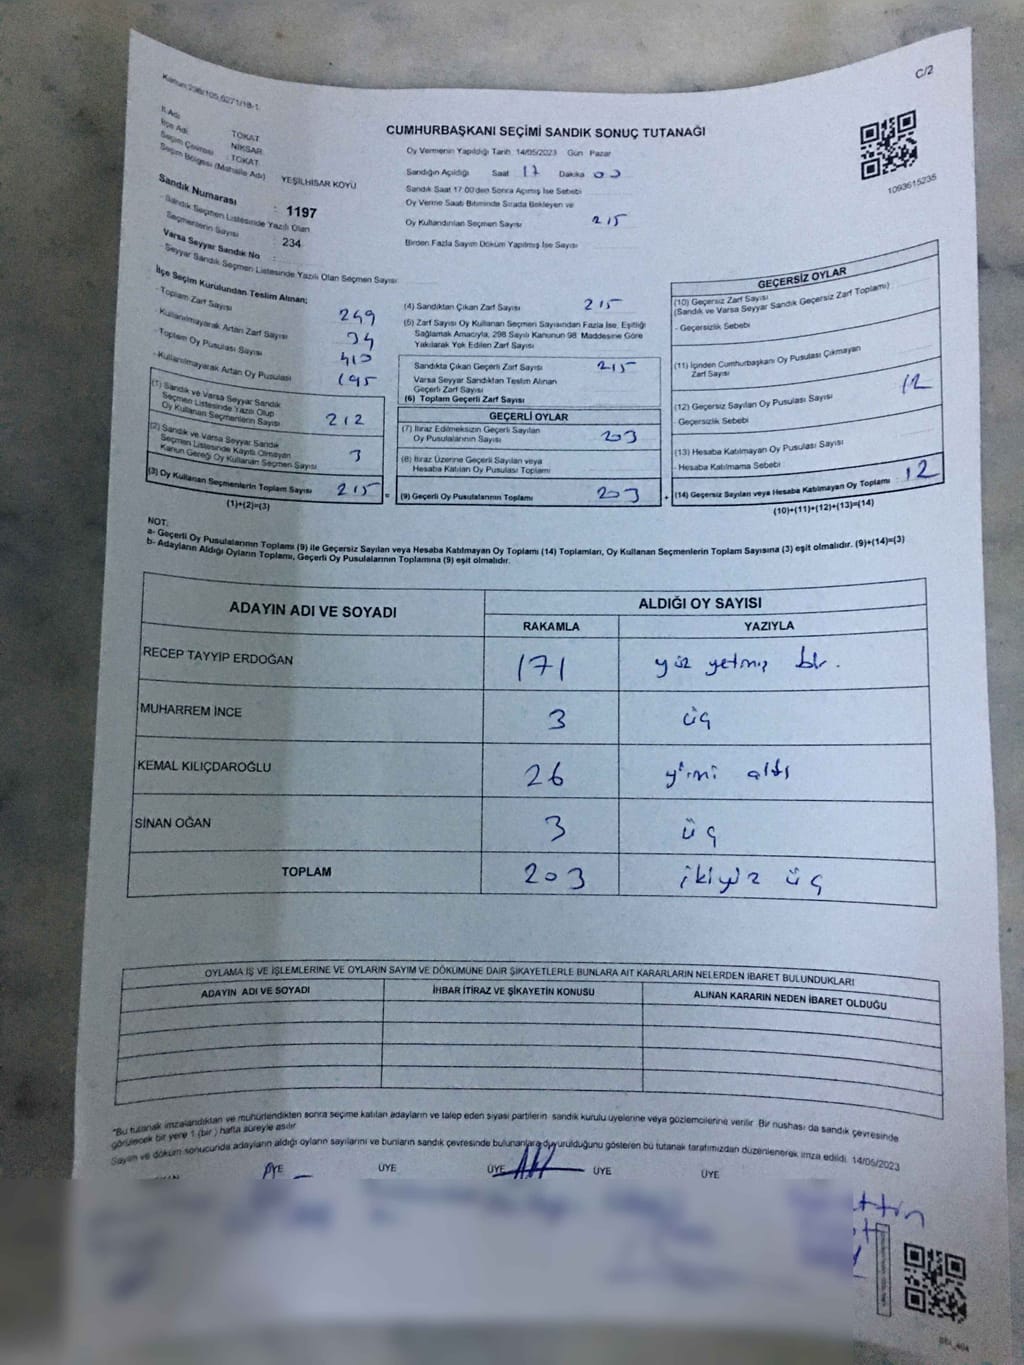 C/2
Kanun:298/105,6271/18-1
İl Adı TOKAT
İlçe Adı NİKSAR
Seçim Çevresi : TOKAT
Seçim Bölgesi (Mahalle Adı) YEŞİLHİSAR KÖYÜ
Sandık Numarası : 1197
- Sandık Seçmen Listesinde Yazılı Olan
Seçmenlerin Sayısı : 234
Varsa Seyyar Sandık No :
- Seyyar Sandık Seçmen Listesinde Yazılı Olan Seçmen Sayısı:
CUMHURBAŞKANI SEÇİMİ SANDIK SONUÇ TUTANAĞI
Oy Vermenin Yapıldığı Tarih 14/05/2023 Gün Pazar
Sandığın Açıldığı Saat 17 Dakika 00
Sandık Saat 17.00'den Sonra Açılmış İse Sebebi
Oy Verme Saati Bitiminde Sırada Bekleyen ve
Oy Kullandırılan Seçmen Sayısı 215
Birden Fazla Sayım Döküm Yapılmış İse Sayısı
1093615235
İlçe Seçim Kurulundan Teslim Alınan;
- Toplam Zarf Sayısı 249
- Kullanılmayarak Artan Zarf Sayısı 34
- Toplam Oy Pusulası Sayısı 410
- Kullanılmayarak Artan Oy Pusulası 195
(1) Sandık ve Varsa Seyyar Sandık
Seçmen Listesinde Yazılı Olup
Oy Kullanan Seçmenlerin Sayısı 212
(2) Sandık ve Varsa Seyyar Sandık
Seçmen Listesinde Kayıtlı Olmayan
Kanun Gereği Oy Kullanan Seçmen Sayısı 3
(3) Oy Kullanan Seçmenlerin Toplam Sayısı 215 =
(1)+(2)=(3)
(4) Sandıktan Çıkan Zarf Sayısı 215
(5) Zarf Sayısı Oy Kullanan Seçmen Sayısından Fazla İse, Eşitliği
Sağlamak Amacıyla, 298 Sayılı Kanunun 98. Maddesine Göre
Yakılarak Yok Edilen Zarf Sayısı
Sandıkta Çıkan Geçerli Zarf Sayısı 215
Varsa Seyyar Sandıktan Teslim Alınan
Geçerli Zarf Sayısı
(6) Toplam Geçerli Zarf Sayısı
GEÇERLİ OYLAR
(7) İtiraz Edilmeksizin Geçerli Sayılan
Oy Pusulalarının Sayısı 203
(8) İtiraz Üzerine Geçerli Sayılan veya
Hesaba Katılan Oy Pusulası Toplamı
(9) Geçerli Oy Pusulalarının Toplamı 203 +
GEÇERSİZ OYLAR
(10) Geçersiz Zarf Sayısı
(Sandık ve Varsa Seyyar Sandık Geçersiz Zarf Toplamı)
- Geçersizlik Sebebi
(11) İçinden Cumhurbaşkanı Oy Pusulası Çıkmayan
Zarf Sayısı
(12) Geçersiz Sayılan Oy Pusulası Sayısı 12
- Geçersizlik Sebebi
(13) Hesaba Katılmayan Oy Pusulası Sayısı
- Hesaba Katılmama Sebebi
(14) Geçersiz Sayılan veya Hesaba Katılmayan Oy Toplamı 12
(10)+(11)+(12)+(13)=(14)
NOT:
a- Geçerli Oy Pusulalarının Toplamı (9) ile Geçersiz Sayılan veya Hesaba Katılmayan Oy Toplamı (14) Toplamları, Oy Kullanan Seçmenlerin Toplam Sayısına (3) eşit olmalıdır. (9)+(14)=(3)
b- Adayların Aldığı Oyların Toplamı, Geçerli Oy Pusulalarının Toplamına (9) eşit olmalıdır.
ADAYIN ADI VE SOYADI ALDIĞI OY SAYISI
RAKAMLA YAZIYLA
RECEP TAYYİP ERDOĞAN 171 yüz yetmiş bir.
MUHARREM İNCE 3 üç
KEMAL KILIÇDAROĞLU 26 yirmi altı
SİNAN OĞAN 3 üç
TOPLAM 203 ikiyüz üç
OYLAMA İŞ VE İŞLEMLERİNE VE OYLARIN SAYIM VE DÖKÜMÜNE DAİR ŞİKAYETLERLE BUNLARA AİT KARARLARIN NELERDEN İBARET BULUNDUKLARI
ADAYIN ADI VE SOYADI İHBAR İTİRAZ VE ŞİKAYETİN KONUSU ALINAN KARARIN NEDEN İBARET OLDUĞU
"Bu tutanak imzalandıktan ve mühürlendikten sonra seçime katılan adayların ve talep eden siyasi partilerin sandık kurulu üyelerine veya gözlemcilerine verilir. Bir nüshası da sandık çevresinde
görülecek bir yere 1 (bir) hafta süreyle asılır
Sayım ve döküm sonucunda adayların aldığı oyların sayılarını ve bunların sandık çevresinde bulunanlara duyurulduğunu gösteren bu tutanak tarafımızdan düzenlenerek imza edildi. 14/05/2023
ÜYE ÜYE ÜYE ÜYE ÜYE